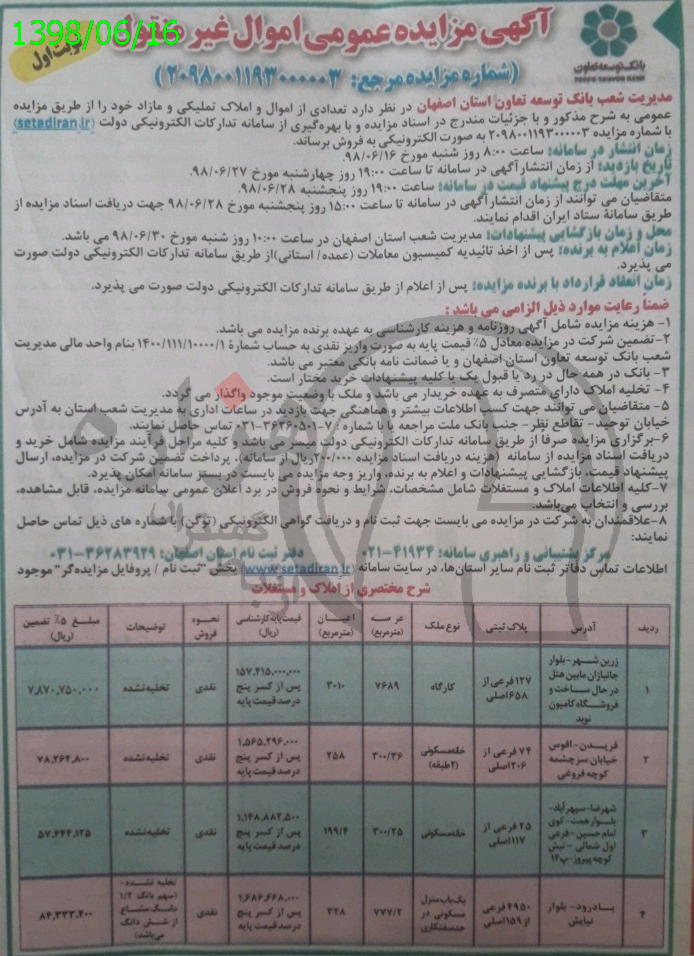 1398/06/16
آگهی مزایده عمومی اموال غیر منقول
نوبت اول
بانک توسعه تعاون
TOSE'E TA'AVON BANK
(شماره مزایده مرجع: ۲۰۹۸۰۰۱۱۹۳۰۰۰۰۰۳)
مدیریت شعب بانک توسعه تعاون استان اصفهان در نظر دارد تعدادی از اموال و املاک تملیکی و مازاد خود را از طریق مزایده
عمومی به شرح مذکور و با جزئیات مندرج در اسناد مزایده و با بهره‌گیری از سامانه تدارکات الکترونیکی دولت (setadiran.ir)
با شماره مزایده ۲۰۹۸۰۰۱۱۹۳۰۰۰۰۰۳ به صورت الکترونیکی به فروش برساند.
زمان انتشار در سامانه: ساعت ۸:۰۰ روز شنبه مورخ ۹۸/۰۶/۱۶.
تاریخ بازدید: از زمان انتشار آگهی در سامانه تا ساعت ۱۹:۰۰ روز چهارشنبه مورخ ۹۸/۰۶/۲۷.
آخرین مهلت درج پیشنهاد قیمت در سامانه: ساعت ۱۹:۰۰ روز پنجشنبه ۹۸/۰۶/۲۸.
متقاضیان می توانند از زمان انتشار آگهی در سامانه تا ساعت ۱۵:۰۰ روز پنجشنبه مورخ ۹۸/۰۶/۲۸ جهت دریافت اسناد مزایده از
طریق سامانهٔ ستاد ایران اقدام نمایند.
محل و زمان بازگشایی پیشنهادات: مدیریت شعب استان اصفهان در ساعت ۱۰:۰۰ روز شنبه مورخ ۹۸/۰۶/۳۰ می باشد.
زمان اعلام به برنده: پس از اخذ تائیدیه کمیسیون معاملات (عمده/ استانی) از طریق سامانه تدارکات الکترونیکی دولت صورت
می پذیرد.
زمان انعقاد قرارداد با برنده مزایده: پس از اعلام از طریق سامانه تدارکات الکترونیکی دولت صورت می پذیرد.
ضمناً رعایت موارد ذیل الزامی می باشد:
۱- هزینه مزایده شامل آگهی روزنامه و هزینه کارشناسی به عهده برنده مزایده می باشد.
۲-تضمین شرکت در مزایده معادل ۵٪ قیمت پایه به صورت واریز نقدی به حساب شمارهٔ ۱۴۰۰/۱۱۱/۱۰۰۰۰/۱ بنام واحد مالی مدیریت
شعب بانک توسعه تعاون استان اصفهان و یا ضمانت نامه بانکی معتبر می باشد.
۳- بانک در همه حال در رد یا قبول یک یا کلیه پیشنهادات خرید مختار است.
۴- تخلیه املاک دارای متصرف به عهده خریدار می باشد و ملک با وضعیت موجود واگذار می گردد.
۵- متقاضیان می توانند جهت کسب اطلاعات بیشتر و هماهنگی جهت بازدید در ساعات اداری به مدیریت شعب استان به آدرس
خیابان توحید- تقاطع نظر- جنب بانک ملت مراجعه یا با شماره: ۷-۰۳۱-۳۶۲۶۰۵۰۱ تماس حاصل نمایند.
۶-برگزاری مزایده صرفا از طریق سامانه تدارکات الکترونیکی دولت می باشد و کلیه مراحل فرآیند مزایده شامل خرید و
دریافت اسناد مزایده از سامانه (هزینه دریافت اسناد مزایده ۲۰۰/۰۰۰ریال از سامانه)، پرداخت تضمین شرکت در مزایده، ارسال
پیشنهاد قیمت، بازگشایی پیشنهادات و اعلام به برنده، واریز وجه مزایده می بایست در بستر سامانه امکان پذیرد.
۷-کلیه اطلاعات املاک و مستغلات شامل مشخصات، شرایط و نحوه فروش در برد اعلان عمومی سامانه مزایده، قابل مشاهده،
بررسی و انتخاب می‌باشد.
۸-علاقمندان به شرکت در مزایده می بایست جهت ثبت نام و دریافت گواهی الکترونیکی (توکن) با شماره های ذیل تماس حاصل
نمایند:
مرکز پشتیبانی و راهبری سامانه: ۴۱۹۳۴-۰۲۱ دفتر ثبت نام استان اصفهان: ۳۶۲۸۳۹۲۹-۰۳۱
اطلاعات تماس دفاتر ثبت نام سایر استان‌ها، در سایت سامانه (www.setadiran.ir) بخش "ثبت نام / پروفایل مزایده‌گر" موجود
شرح مختصری از املاک و مستغلات
ردیف آدرس پلاک ثبتی نوع ملک عرصه (مترمربع) اعیان (مترمربع) قیمت پایه کارشناسی (ریال) نحوه فروش توضیحات مبلغ ۵٪ تضمین (ریال)
۱ زرین شهر- بلوار جانبازان مابین هتل در حال ساخت و فروشگاه کامیون نوید ۱۲۷ فرعی از ۶۵۸ اصلی کارگاه ۷۶۸۹ ۳۰۱۰ ۱۵۷.۴۱۵.۰۰۰.۰۰۰ پس از کسر پنج درصد قیمت پایه نقدی تخلیه نشده ۷,۸۷۰,۷۵۰,۰۰۰
۲ فریدن- افوس خیابان سرچشمه کوچه فروغی ۷۴ فرعی از ۲۰۶ اصلی خانه مسکونی (۲طبقه) ۳۰۰/۳۶ ۲۵۸ ۱.۵۶۵.۲۹۶.۰۰۰ پس از کسر پنج درصد قیمت پایه نقدی تخلیه نشده ۷۸,۲۶۴,۸۰۰
۳ شهرضا- سپهرآباد- بلوار همت- کوی امام حسین- فرعی اول شمالی- نبش کوچه پیروز- پ۱۴ ۲۵ فرعی از ۱۱۷ اصلی خانه مسکونی ۳۰۰/۲۵ ۱۹۹/۴ ۱.۱۴۸.۸۸۲.۵۰۰ پس از کسر پنج درصد قیمت پایه نقدی تخلیه نشده ۵۷,۴۴۴,۱۲۵
۴ بادرود- بلوار نیایش ۴۹۵۰ فرعی از ۱۵۹ اصلی یک باب منزل مسکونی در حد سفتکاری ۷۷۷/۲ ۳۲۸ ۱.۶۸۶.۶۶۸.۰۰۰ پس از کسر پنج درصد قیمت پایه نقدی تخلیه نشده- (سهم بانک ۱/۲ دانگ مشاع از شش دانگ می‌باشد) ۸۴,۳۳۳,۴۰۰